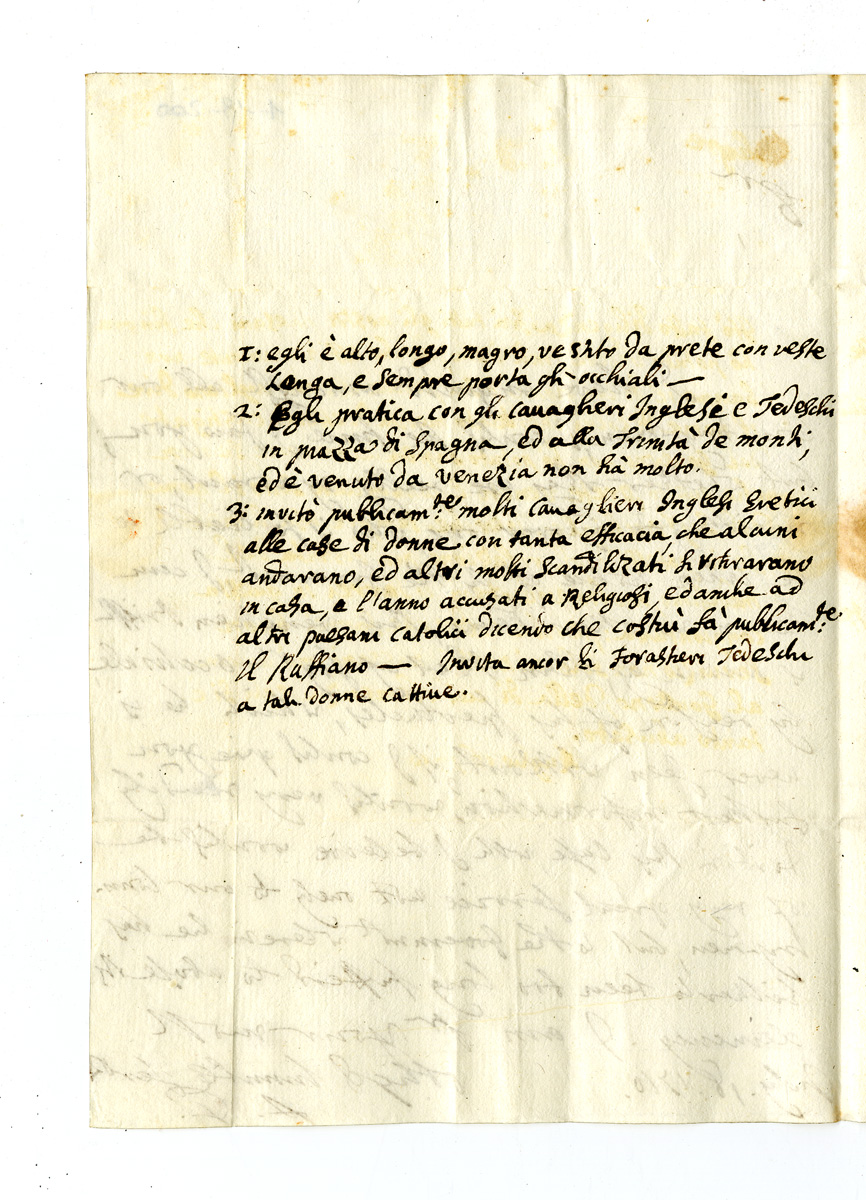 1: egli è alto, longo, magro, vestito da prete con veste
Longa, e sempre porta gli occhiali —
2: Egli pratica con gli Cauagheri Inglesi e Tedeschi
in piazza di Spagna, ed alla Trinità de monti,
ed è venuto da venezia non hà molto.
3: invitò publicam:te molti Cauaglieri Inglesi Eretici
alle case di donne con tanta efficacia, che alcuni
andarano, ed altri molti Scandilizati si ritirarano
in casa, e l'anno accusati a Religiosi, ed anche ad
altri paesani Catolici dicendo che costui fà publicam:te
il Ruffiano — Invita ancor li Forastieri Tedeschi
a tali donne cattiue.